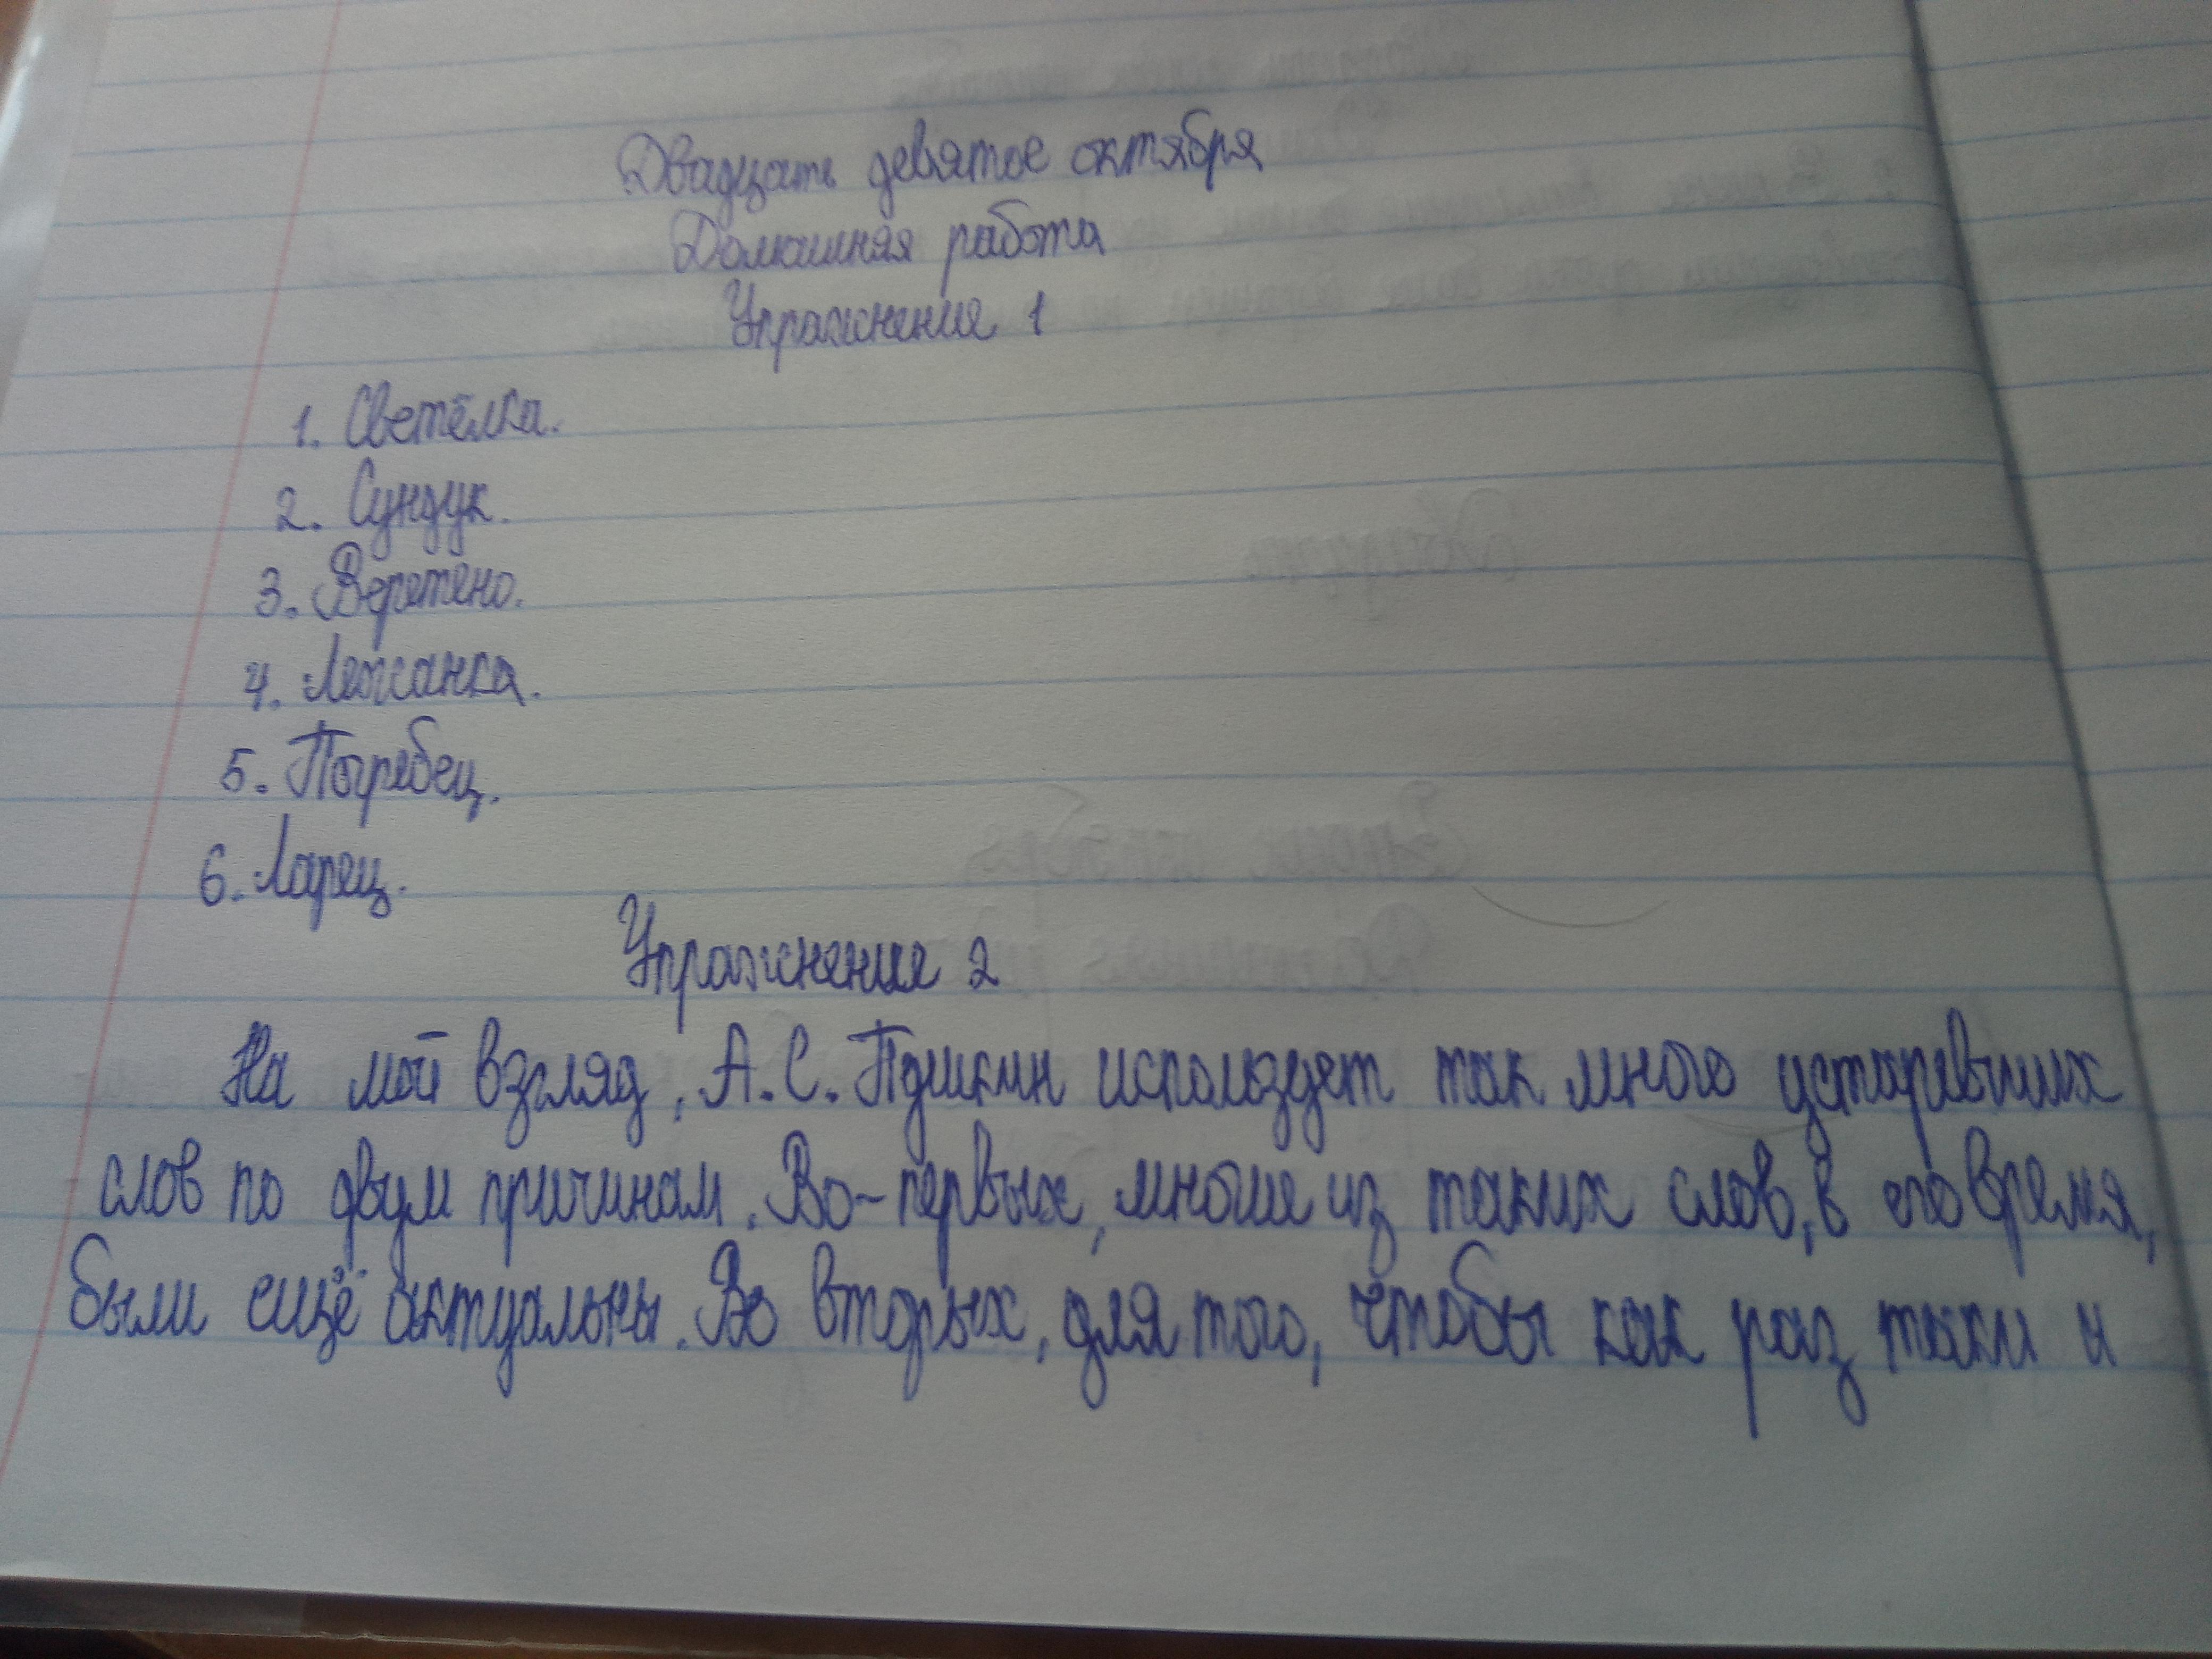 Двадцать девятое октября
Домашняя работа
Упражнение 1
1. Светёлка.
2. Сундук.
3. Веретено.
4. Лежанка.
5. Погребец.
6. Ларец.
Упражнение 2
На мой взгляд, А.С. Пушкин использует так много устаревших
слов по двум причинам. Во-первых, многие из таких слов, в его время,
были ещё актуальны. Во вторых, для того, чтобы как раз таки и